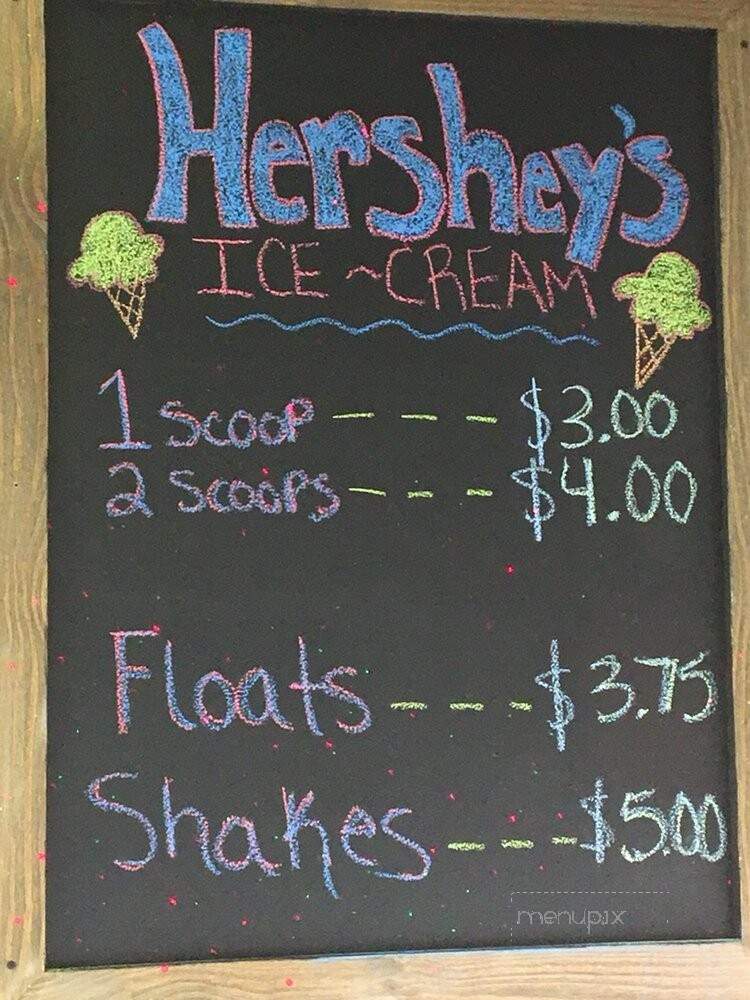 Hershey's
ICE ~ CREAM
1 scoop - - - $3.00
2 scoops - - - $4.00
Floats - - - $3.75
Shakes - - - $5.00
menupix